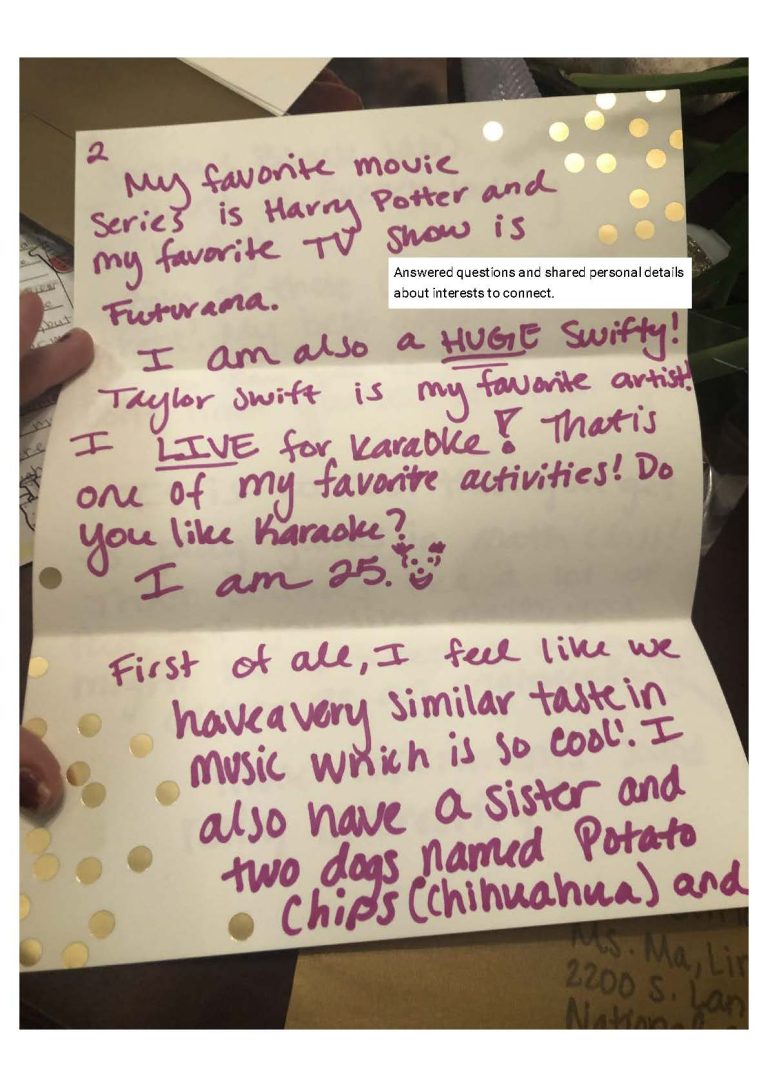 2
My favorite movie
series is Harry Potter and
my favorite TV show is
Futurama.
Answered questions and shared personal details
about interests to connect.
I am also a HUGE Swifty!
Taylor Swift is my favorite artist!
I LIVE for Karaoke! That is
one of my favorite activities! Do
you like Karaoke?
I am 25.
First of all, I feel like we
have a very similar taste in
music which is so cool! I
also have a sister and
two dogs named Potato
Chips (Chihuahua) and
Ms. Ma, Lin
2200 S. Lan
National